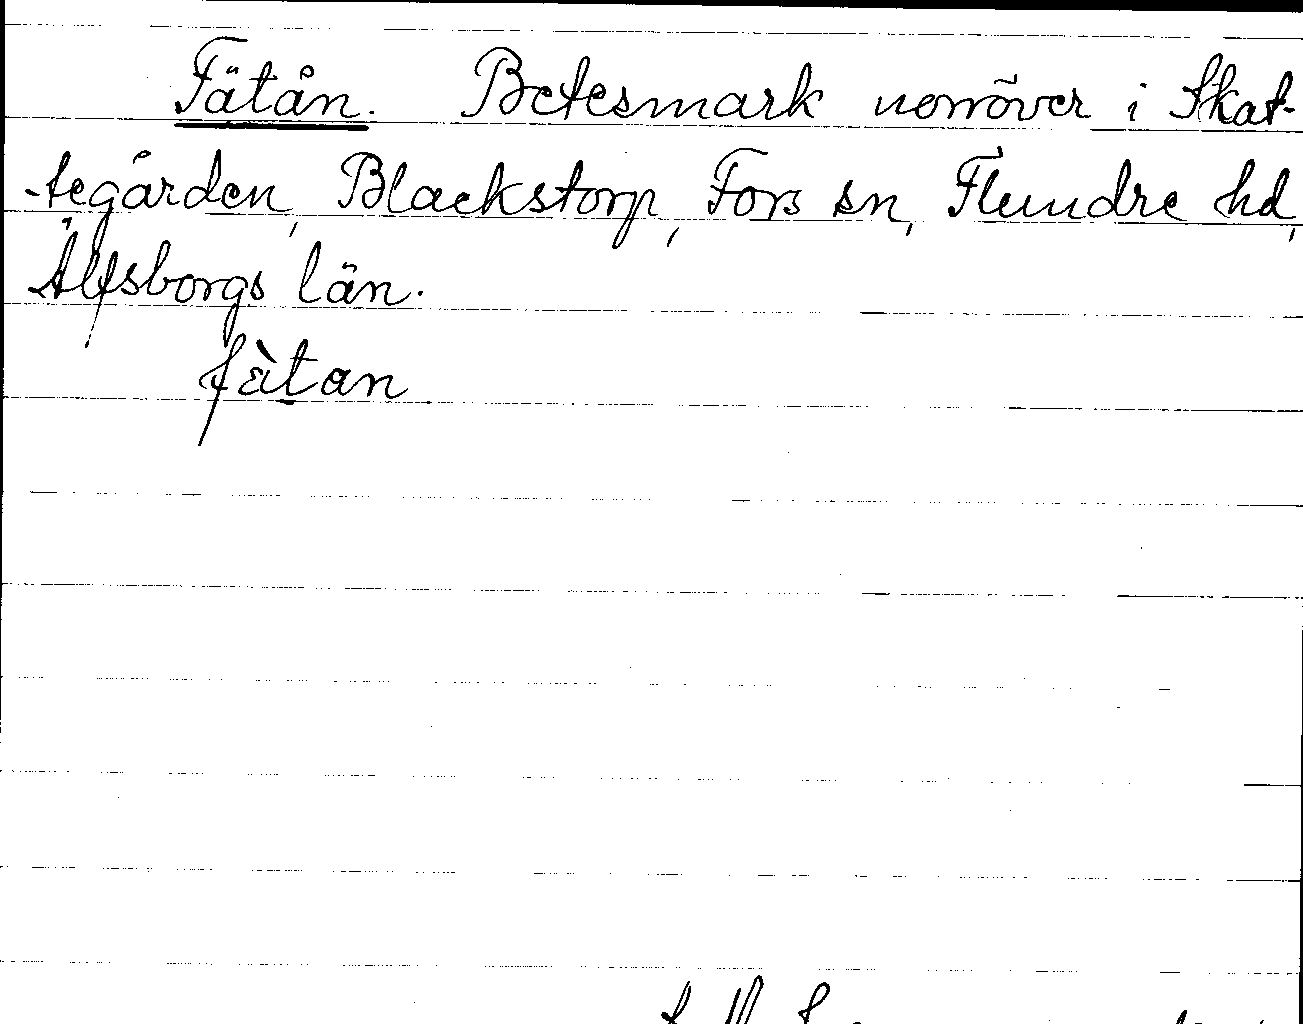 Fätån. Betesmark norröver i Skat-
tegården, Blackstorp, Fors sn, Flundre hd,
Älfsborgs län.
fàtan